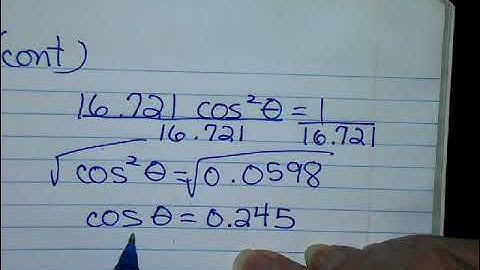 (cont)
16.721 cos²θ = 1
16.721 16.721
√cos²θ = √0.0598
cos θ = 0.245